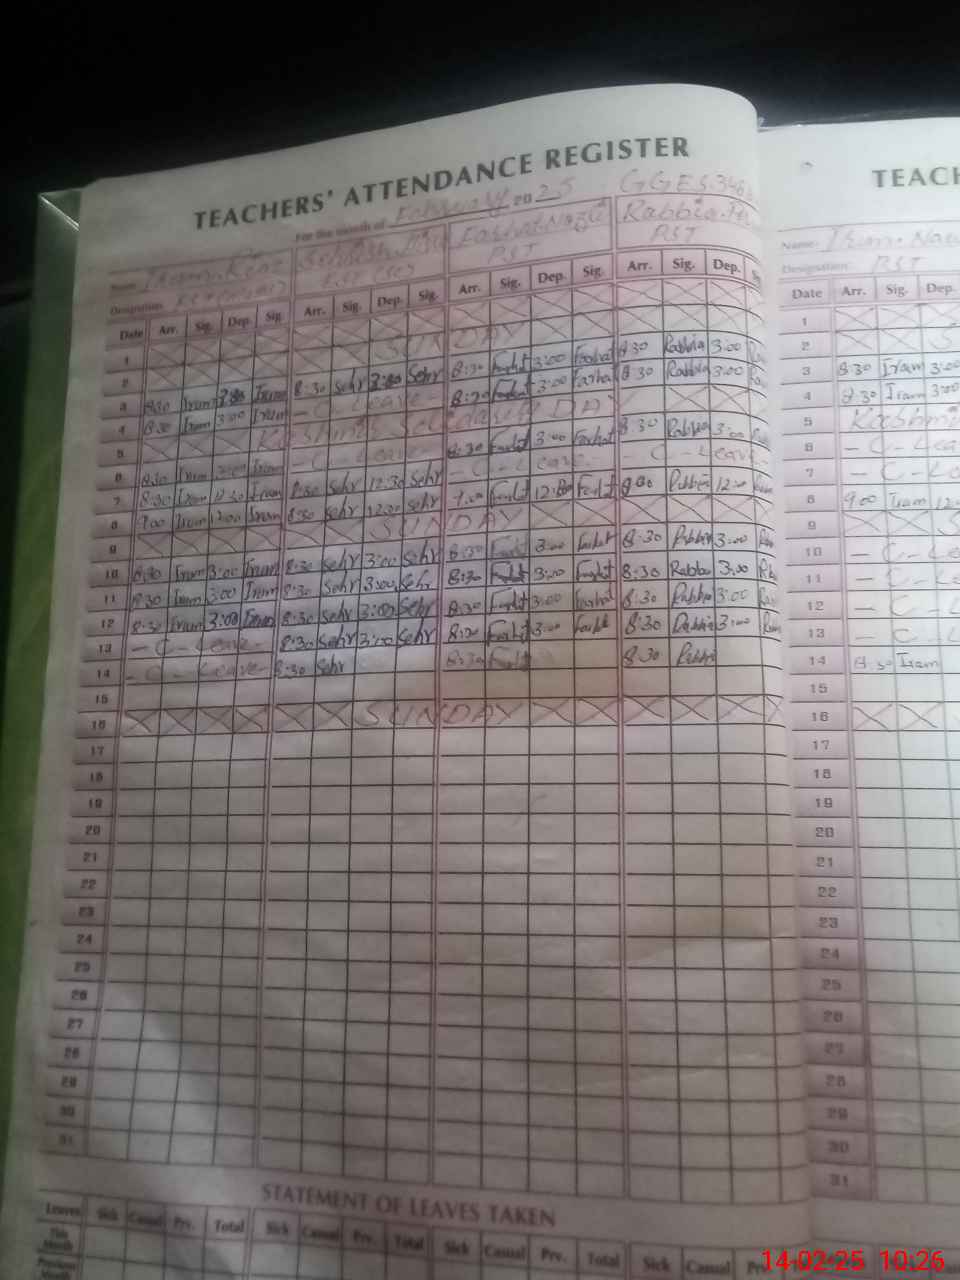 TEACHERS' ATTENDANCE REGISTER
TEACH
For the month of February 2025 GGES
Name: Irum Sehrish Farhat Rabbia
PST PST
Name: Irum
Designation: PST
Designation:
Date Arr. Sig. Dep. Sig. Arr. Sig. Dep. Sig. Arr. Sig. Dep. Sig. Arr. Sig. Dep.
Date Arr. Sig. Dep.
1
1
SUNDAY
2
2 S
3 8:30 Irum 3:00 Irum 8:30 Sehr 3:00 Sehr 8:30 Farhat 3:00 Farhat 8:30 Rabbia 3:00
3 8:30 Iram 3:00
4 8:30 Irum 3:00 Irum - C - Leave - 8:30 Farhat 3:00 Farhat 8:30 Rabbia 3:00
4 8:30 Iram 3:00
5 Kashmir Solidarity DAY
5 Kashmi
6 8:30 Irum 3:00 Irum - C - Leave 8:30 Farhat 3:00 Farhat 8:30 Rabbia 3:00
6 - C - Le
7 8:30 Irum 12:30 Irum 8:30 Sehr 12:30 Sehr - C - Leave - C - Leave
7 - C - Le
8 9:00 Irum 12:00 Irum Sehr 12:00 Sehr 9:00 Farhat 12:00 Farhat 9:00 Rabbia 12:00
8 9:00 Iram 12
9 SUNDAY
9 S
10 8:30 Irum 3:00 Irum 8:30 Sehr 3:00 Sehr 8:30 Farhat 3:00 Farhat 8:30 Rabbia 3:00
10 - C - Le
11 8:30 Irum 3:00 Irum 8:30 Sehr 3:00 Sehr 8:30 Farhat 3:00 Farhat 8:30 Rabbia 3:00
11 - C - Le
12 8:30 Irum 3:00 Irum 8:30 Sehr 3:00 Sehr 8:30 Farhat 3:00 Farhat 8:30 Rabbia 3:00
12 - C - L
13 - C - Leave - 8:30 Sehr 3:00 Sehr 8:30 Farhat 3:00 Farhat 8:30 Rabbia 3:00
13 - C - L
14 - C - Leave 8:30 Sehr 8:30 Farhat 8:30 Rabbia
14 8:30 Iram
15
15
16 SUNDAY
16
17
17
18
18
19
19
20
20
21
21
22
22
23
23
24
24
25
25
26
26
27
27
28
28
29
29
30
30
31
31
STATEMENT OF LEAVES TAKEN
Leaves Sick Casual Prv. Total Sick Casual Prv. Total Sick Casual Prv. Total Sick Casual Prv.
This Month
Previous Month
14-02-25 10:26